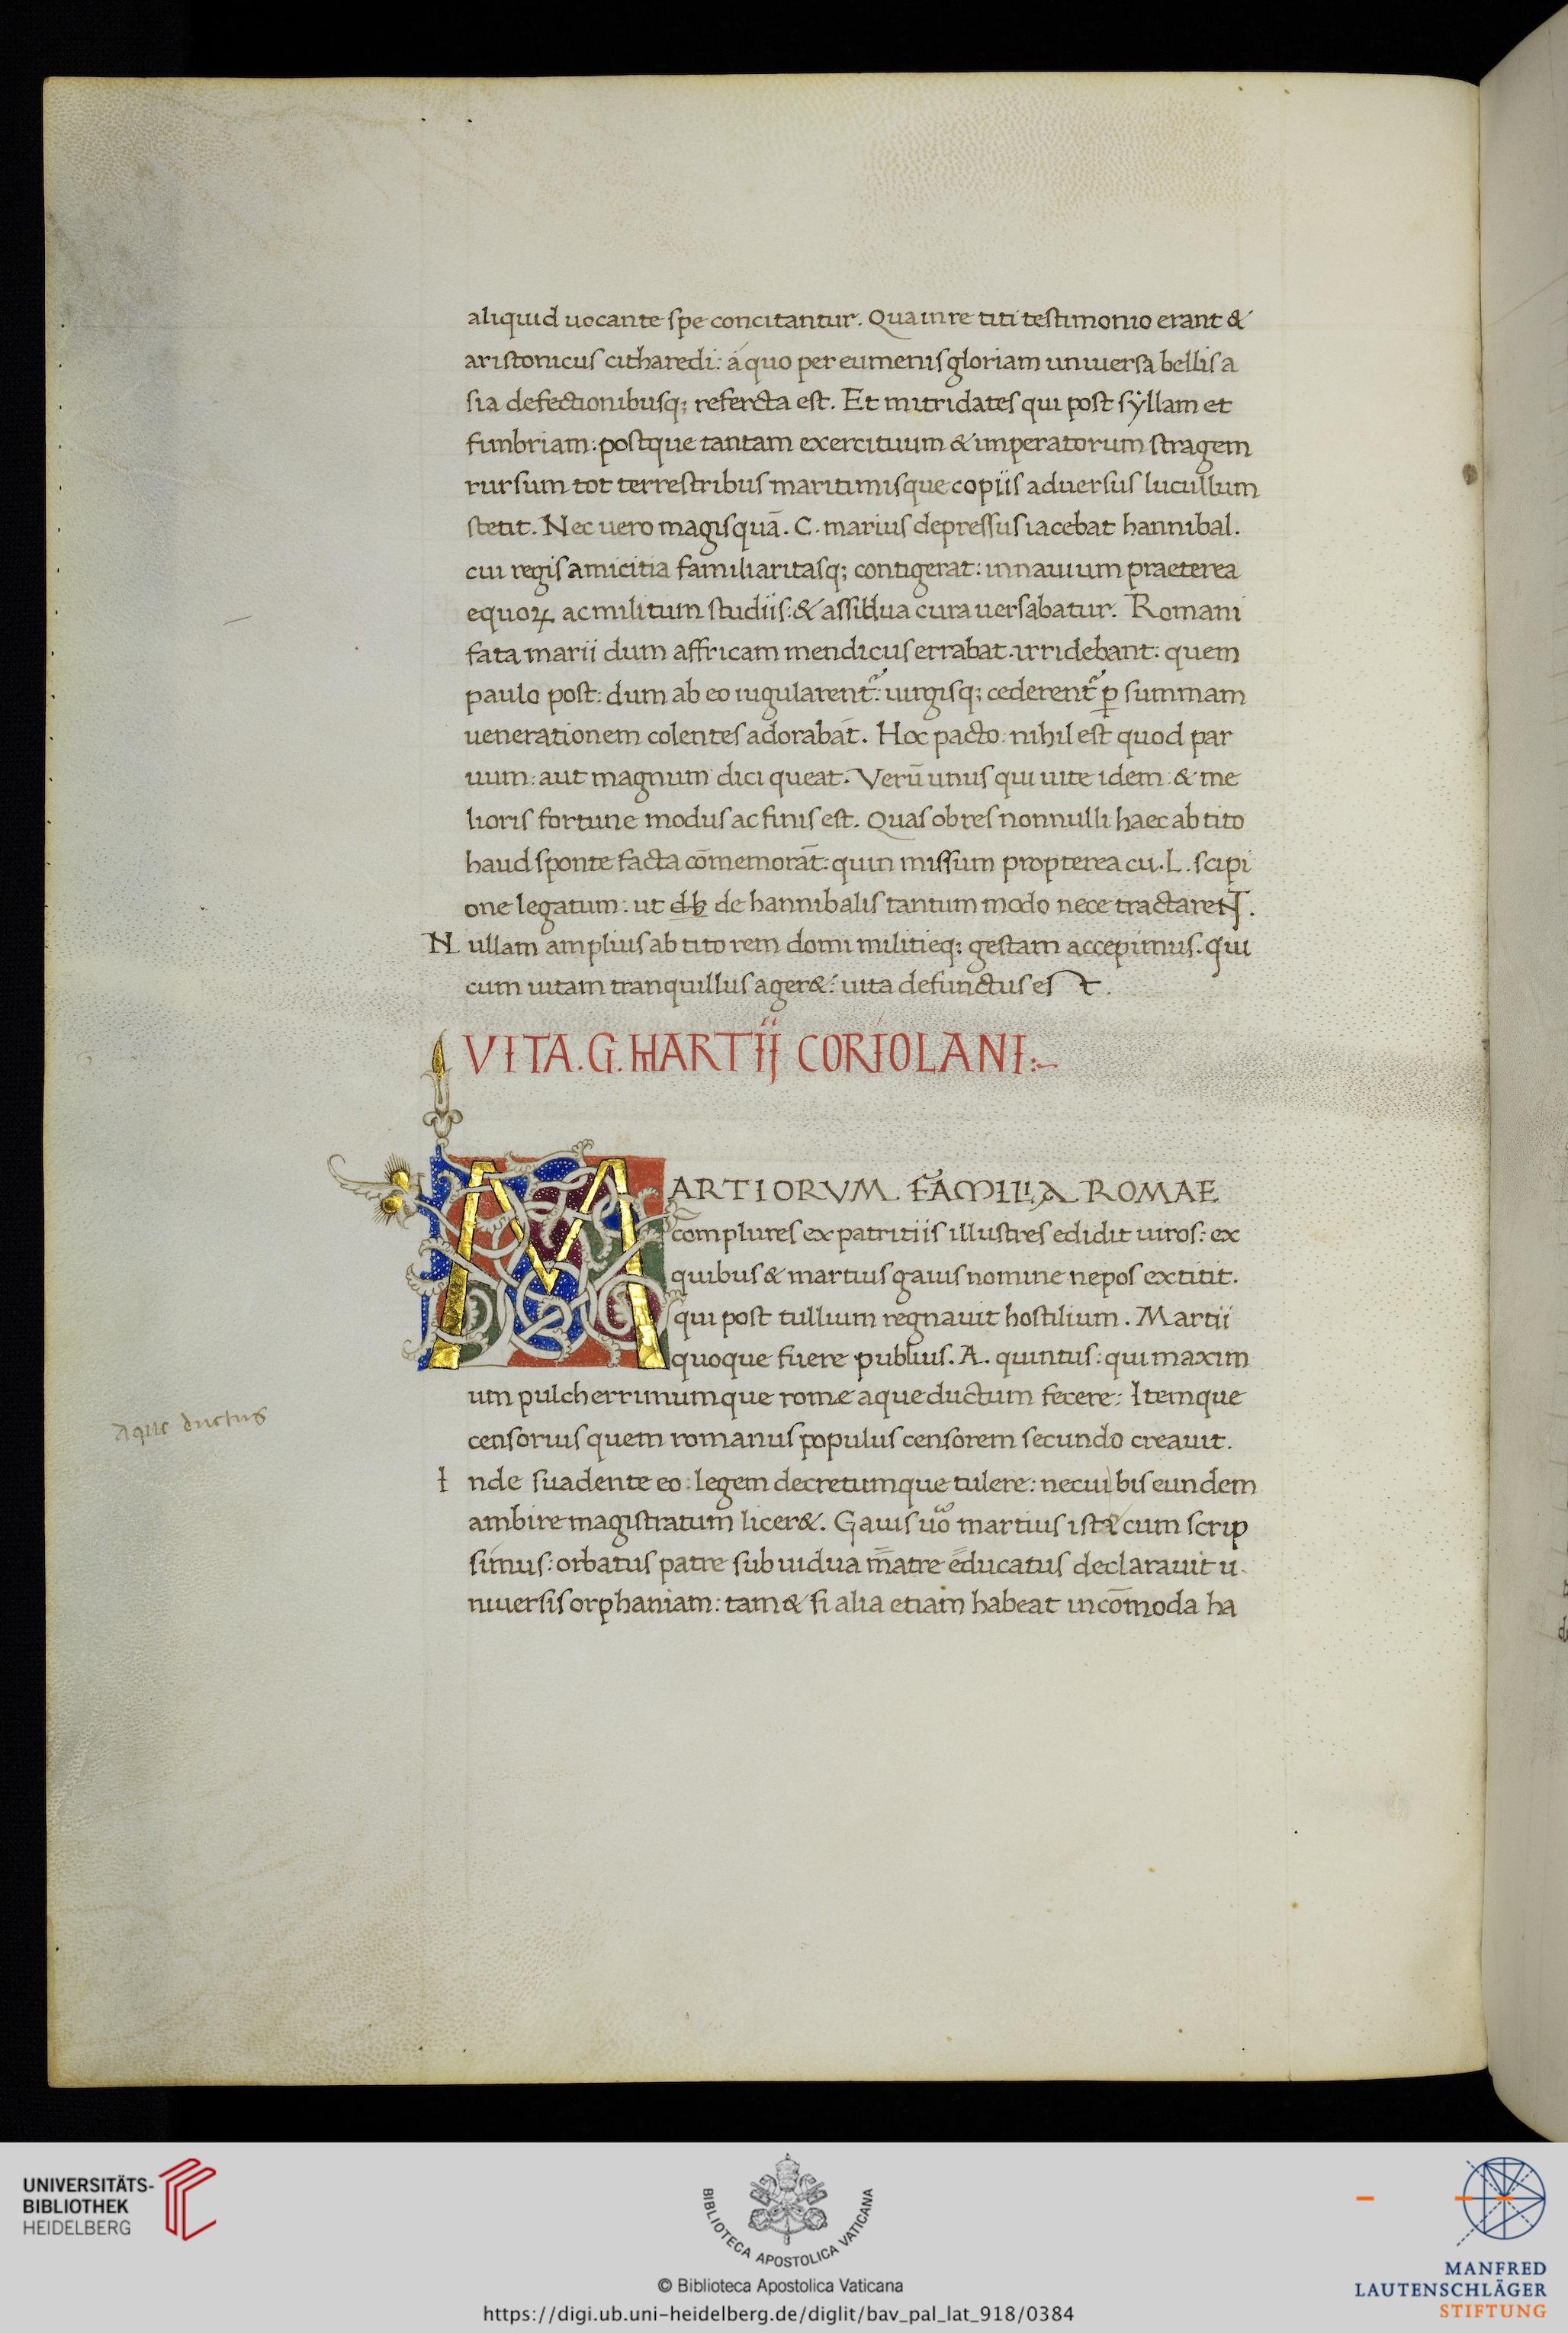 aliquid uocante spe concitantur. Qua in re titi testimonio erant &
aristonicus citharedi: á quo per eumenis gloriam uniuersa bellis a
sia defectionibusq; refercta est. Et mitridates qui post sÿllam et
fimbriam: postque tantam exercituum & imperatorum stragem
rursum tot terrestribus maritimisque copiis aduersus lucullum
stetit. Nec uero magis quā. C. marius depressus iacebat hannibal.
cui regis amicitia familiaritasq; contigerat: in nauium praeterea
equoꝝ ac militum studiis: & assidua cura uersabatur. Romani
fata marii dum affricam mendicus errabat. irridebant: quem
paulo post: dum ab eo iugularent᷑: uirgisq; cederent᷑ ꝑ summam
uenerationem colentes adorabāt. Hoc pacto: nihil est quod par
uum: aut magnum dici queat. Verū unus qui uite idem: & me
lioris fortune modus ac finis est. Quas ob res nonnulli haec ab tito
haud sponte facta cōmemorāt: quin missum propterea cu. L. scipi
one legatum: ut de hannibalis tantum modo nece tractareNT.
Nullam amplius ab tito rem domi militieq; gestam accepimus. qui
cum uitam tranquillus ager&: uita defunctus est.
VITA. G. MARTIJ CORIOLANI:~
MARTIORVM FAMILIA ROMAE
complures ex patritiis illustres edidit uiros: ex
quibus & martius gaius nomine nepos extitit.
qui post tullium regnauit hostilium. Martii
quoque fuere publius. A. quintus: qui maxim
um pulcherrimumque romæ aque ductum fecere: Itemque
censorius quem romanus populus censorem secundo creauit.
Inde suadente eo: legem decretumque tulere: ne cui bis eundem
ambire magistratum licer&. Gaius uº martius ista cum scrip
simus: orbatus patre sub uidua matre educatus declarauit u
niuersis orphaniam: tam & si alia etiam habeat incōmoda ha
aque ductus
UNIVERSITÄTS-
BIBLIOTHEK
HEIDELBERG
BIBLIOTECA APOSTOLICA VATICANA
© Biblioteca Apostolica Vaticana
https://digi.ub.uni-heidelberg.de/diglit/bav_pal_lat_918/0384
MANFRED
LAUTENSCHLÄGER
STIFTUNG